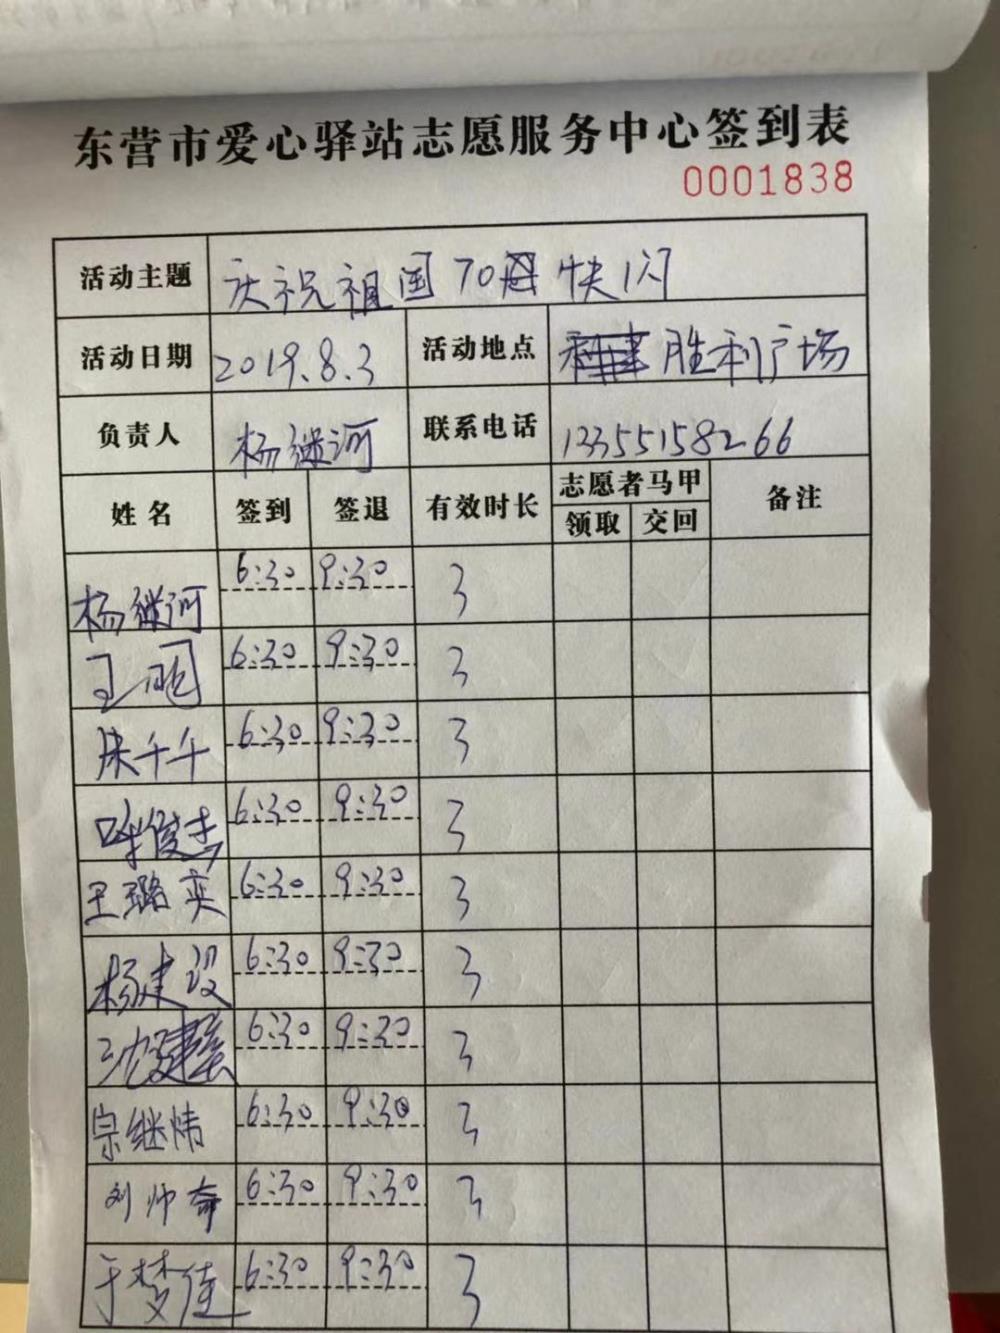 东营市爱心驿站志愿服务中心签到表
0001838
活动主题 庆祝祖国70周 快闪
活动日期 2019.8.3 活动地点 胜利广场
负责人 杨继河 联系电话 13355158266
姓名 签到 签退 有效时长 志愿者马甲 备注
领取 交回
杨继河 6:30 9:30 3
王 6:30 9:30 3
千千 6:30 9:30 3
呼俊杰 6:30 9:30 3
王璐奕 6:30 9:30 3
杨建设 6:30 9:30 3
6:30 9:30 3
宗继炜 6:30 9:30 3
刘帅奇 6:30 9:30 3
于梦佳 6:30 9:30 3